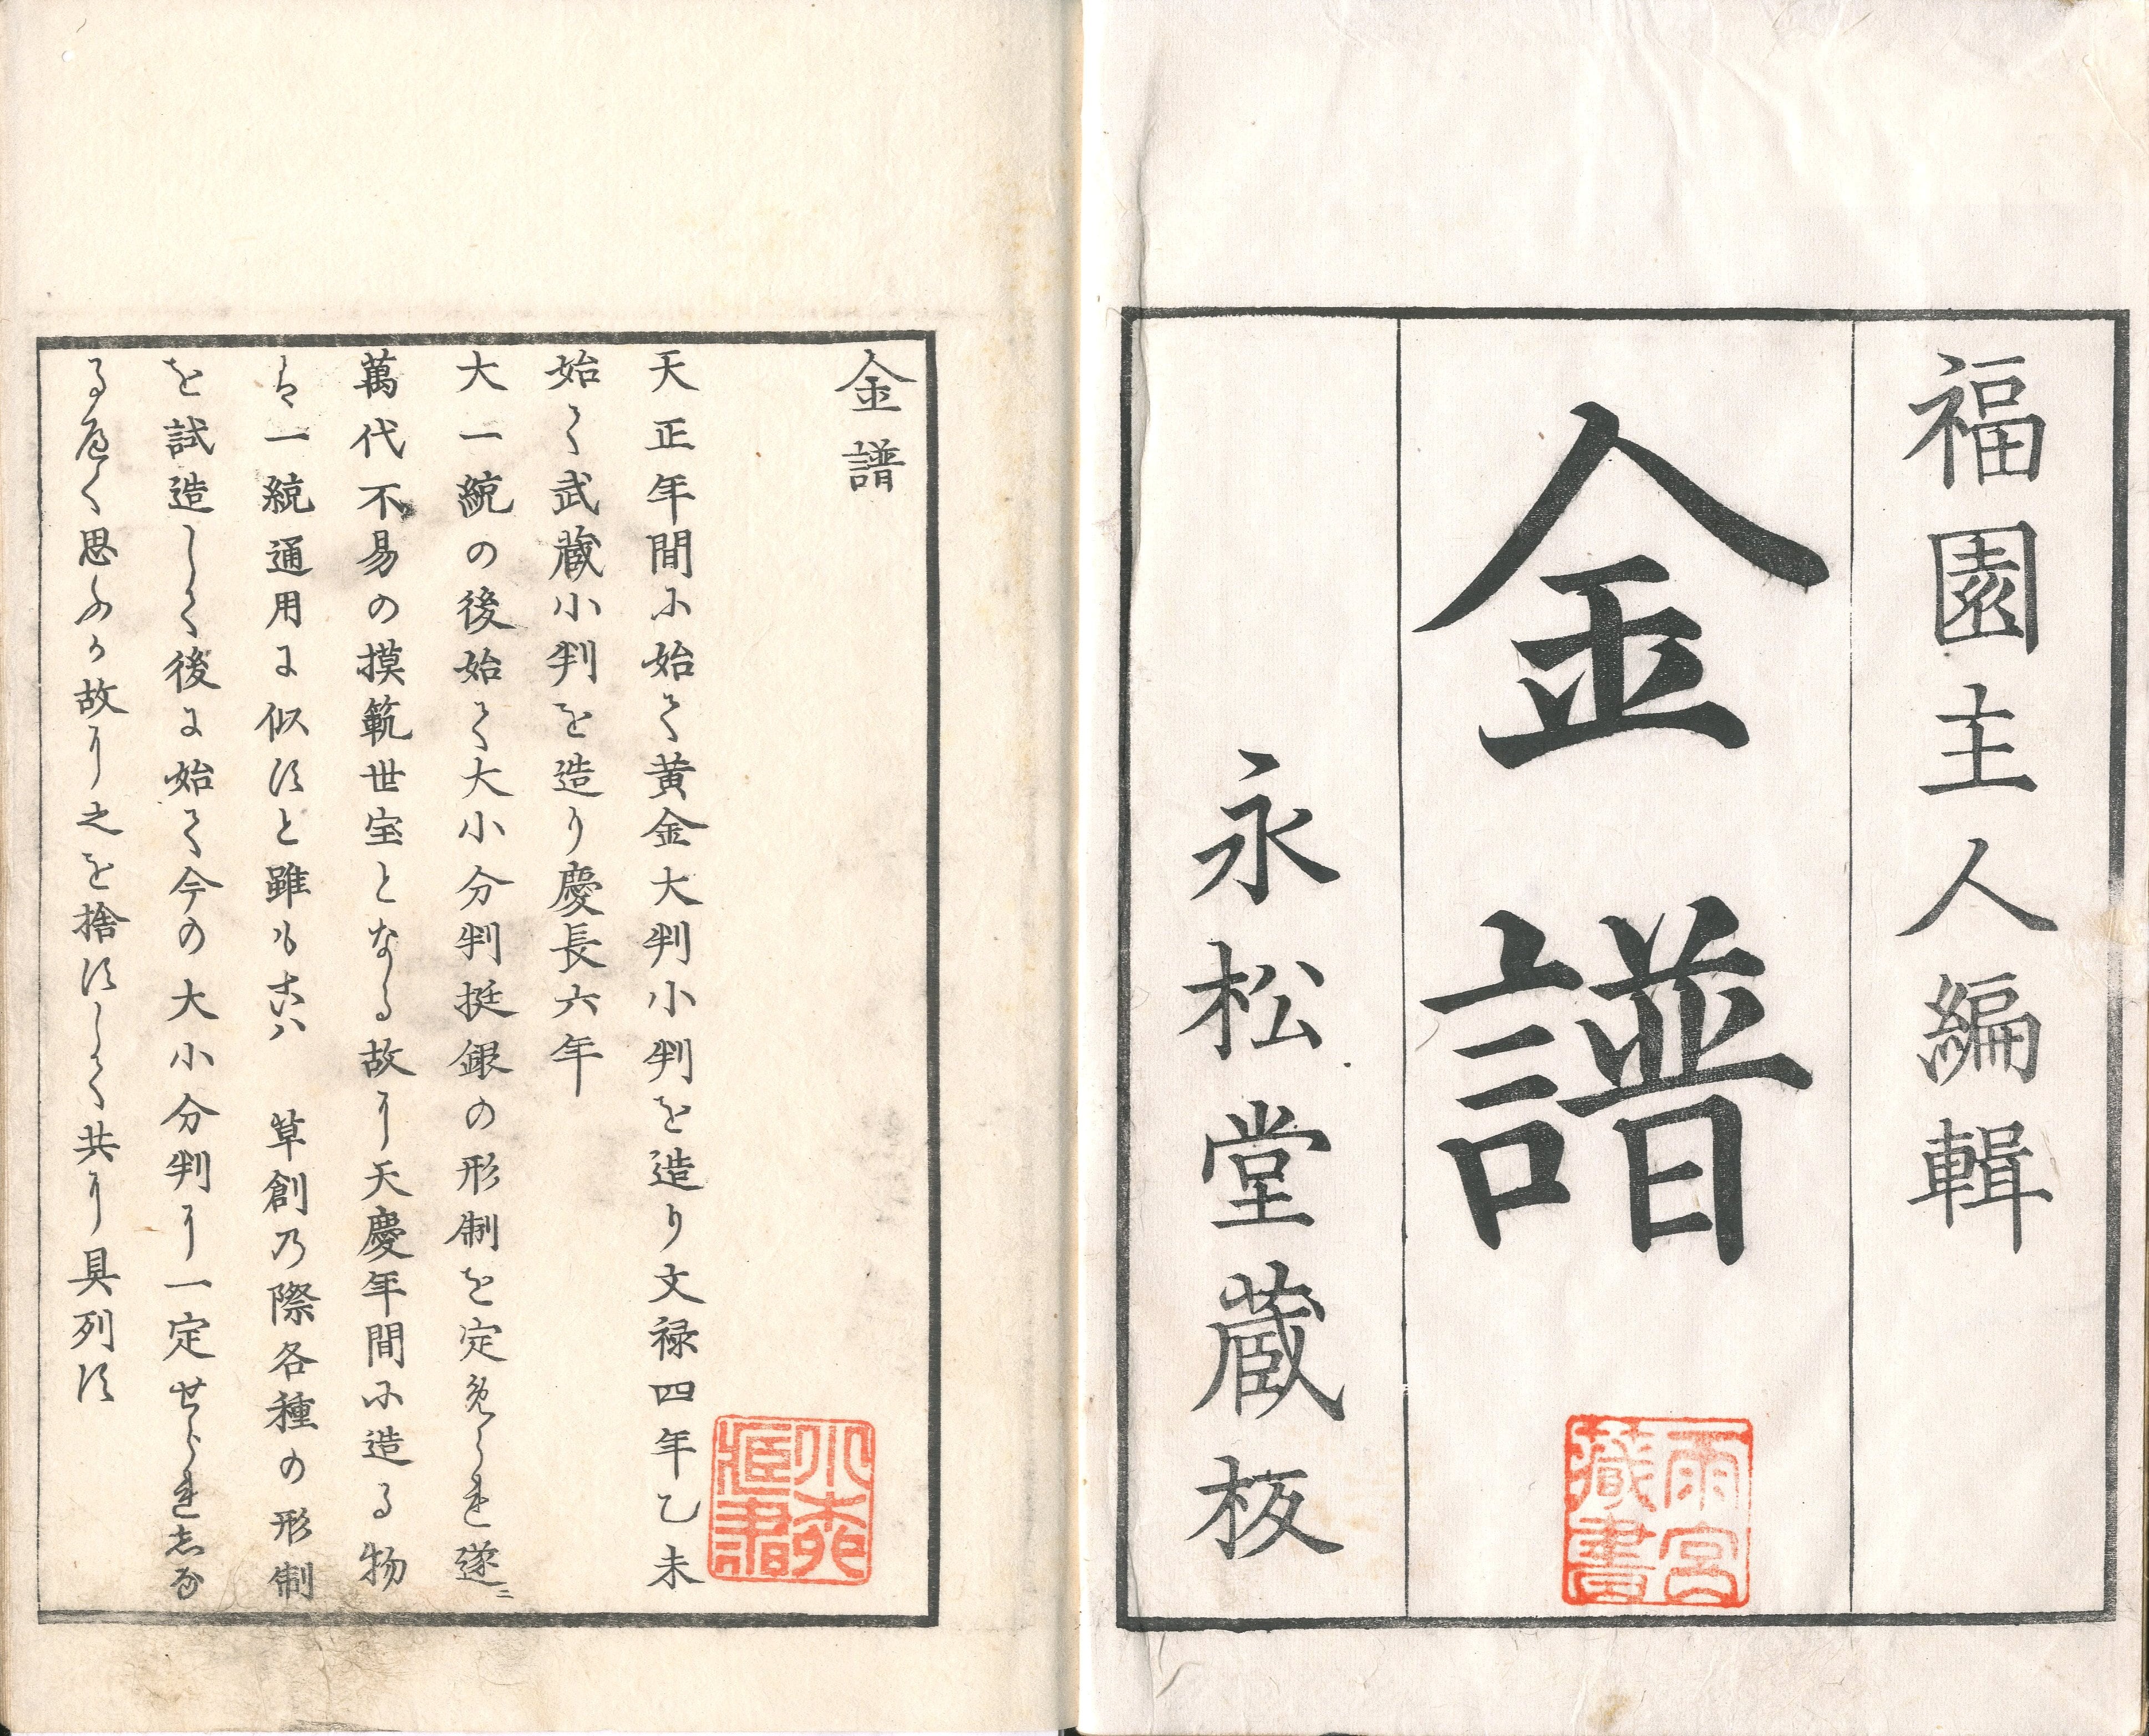 福園主人編輯
金譜
永松堂蔵板
雨宮藏書
金譜
天正年間に始て黄金大判小判を造り文禄四年乙未
始て武蔵小判を造り慶長六年
大一統の後始て大小分判挺銀の形制を定められ遂ニ
萬代不易の摸範世宝となる故に天慶年間に造る物
は一統通用に似すと雖も 草創乃際各種の形制
を試造して後に始て今の大小分判に一定せられしな
るへく思ふか故に之を捨すして共に具列す